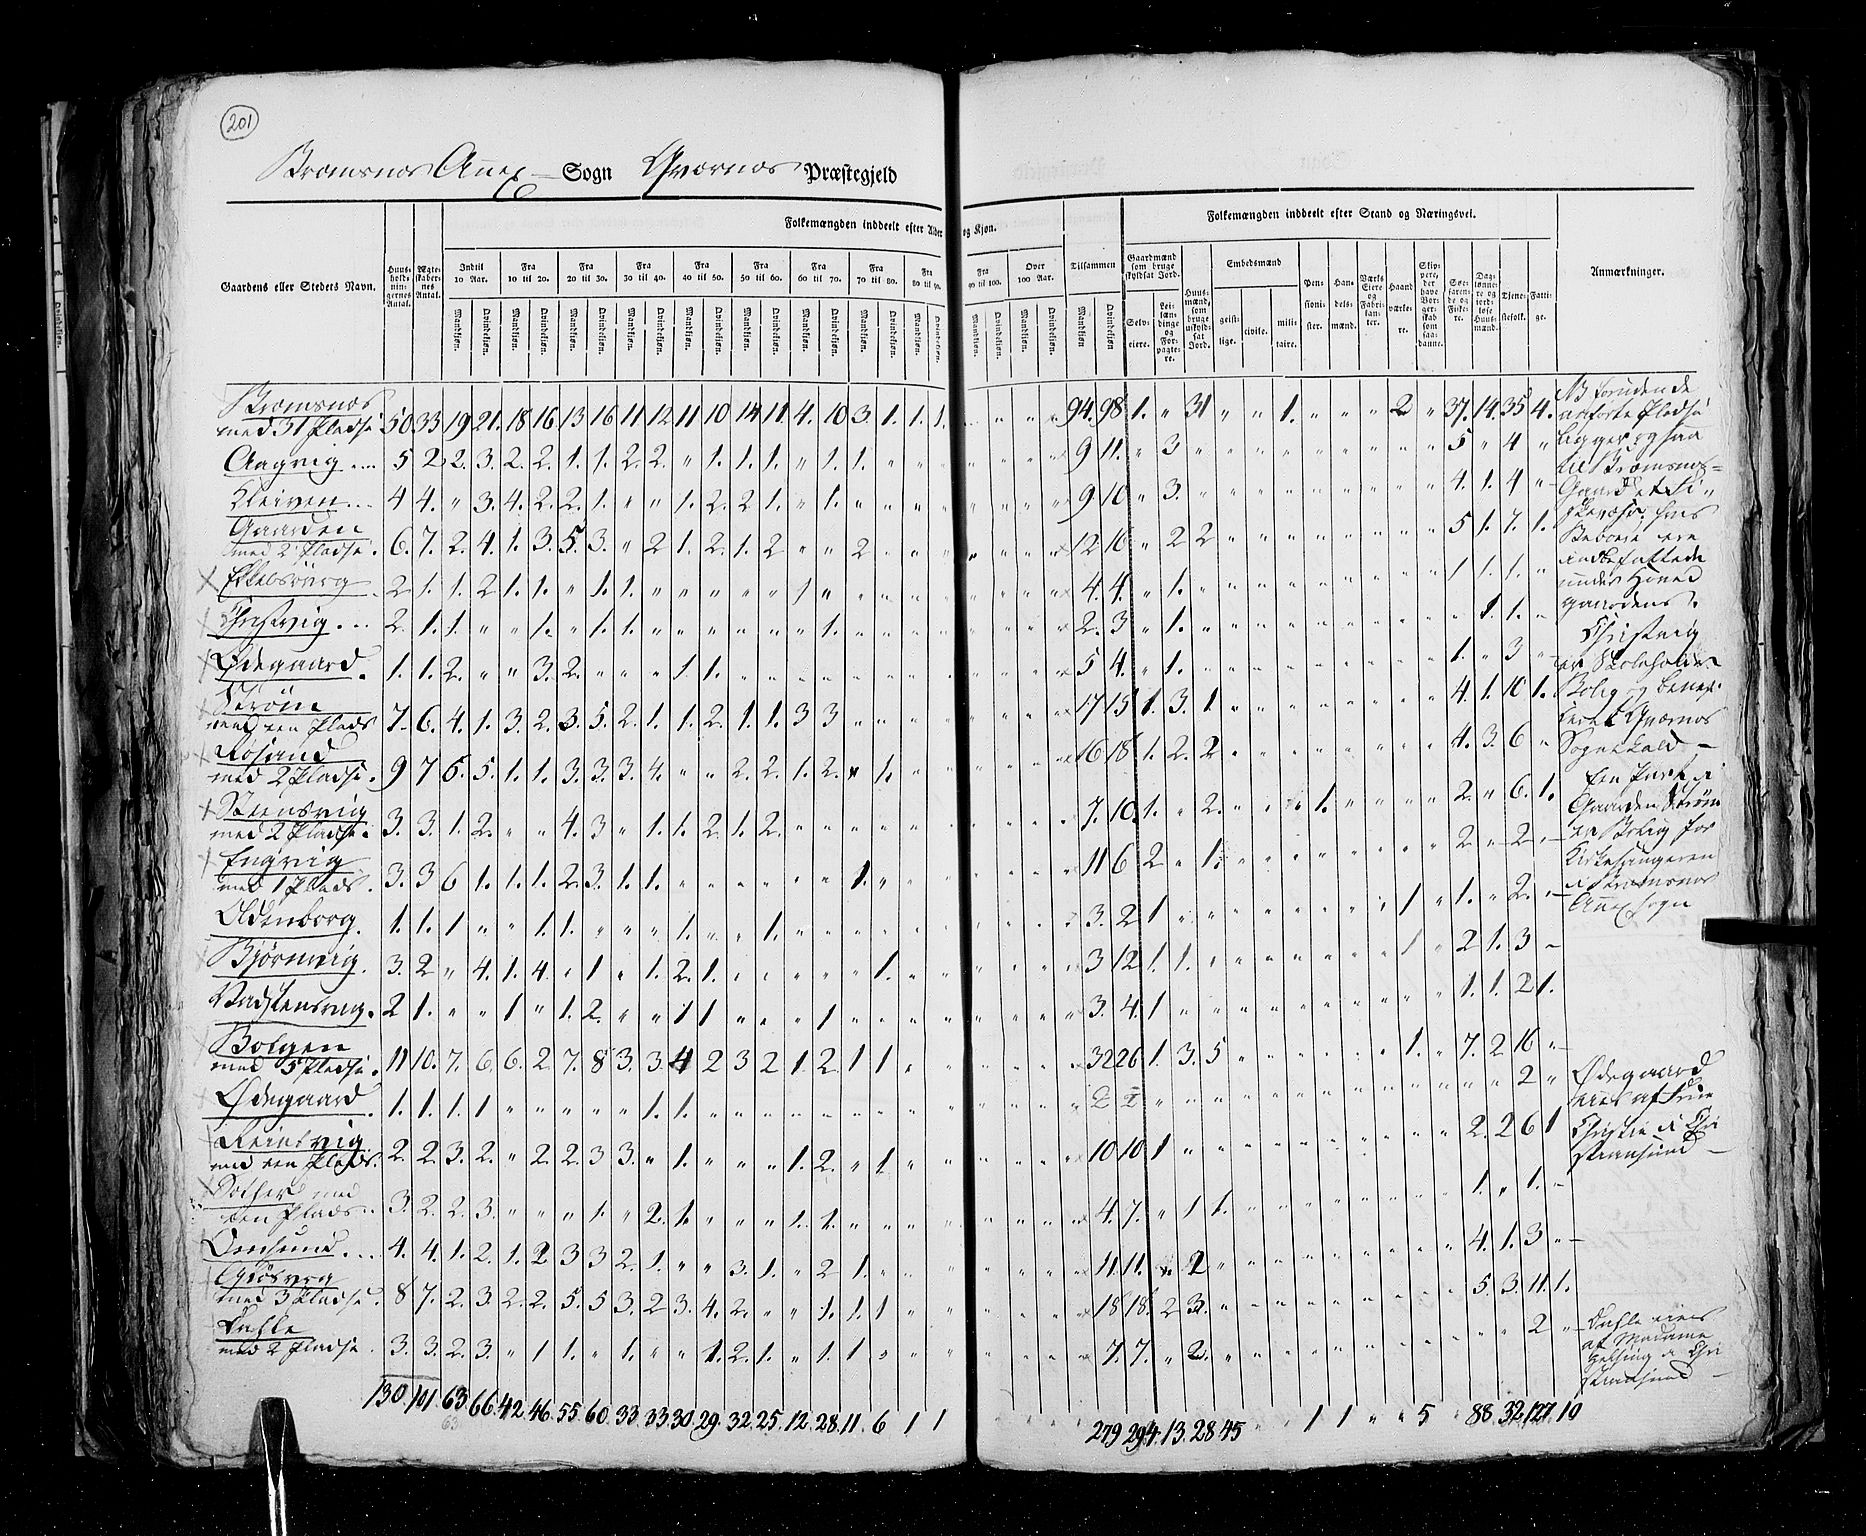 201
Bremsnes Anex Sogn Qværnes Præstegjeld
Folkemængden inddeelt efter Alder og Kjøn.
Folkemængden inddeelt efter Stand og Næringsvei.
Gaardens eller Stedets Navn.
Huusholdningernes Antal.
Ægteskabernes Antal.
Indtil 10 Aar.
Fra 10 til 20.
Fra 20 til 30.
Fra 30 til 40.
Fra 40 til 50.
Fra 50 til 60.
Fra 60 til 70.
Fra 70 til 80.
Fra 80 til 90.
Fra 90 til 100.
Over 100 Aar.
Tilsammen
Mandkjøn. Qvindekjøn.
Gaardmænd som bruge skyldsat Jord.
Selveiere.
Leilændinge og Forpagtere.
Huusmænd, som bruge uskyldsat Jord.
Embedsmænd
geistlige. civile. militaire.
Pensionister.
Handelsmænd.
Værks Eiere og Fabrikanter.
Haandværkere.
Skippere, der have Borgerskab som saadanne.
Søefarende og Fiskere.
Daglønnere og jordløse Huusmænd.
Tjenestefolk.
Fattige.
Anmærkninger.
Bremsnes
med 31 Pladse 50 33 19 21. 18 16 13 16 11 12 11 10 14 11 4. 10 3. 1. 1. 1. 94. 98 1. " 31 " " 1. " " " 2 " 37. 14. 35 4.
Aagvig 5 2 2. 3. 2. 2. 1. 1. 2. 2. " 1. 1. 1. " 1. 1. 9 11. " 3 5 " 4 "
Kleiven 4 4. " 3. 4. 2. 2. 1. " " 1. 2. 2. 1. " 1. 9 10 " 3. 4. 1. 4 "
Gaarden
med 2 Pladse. 6. 7. 2. 4. 1. 3. 5. 3. " 2 1. 2. 1. 2 " " 2 12 16 " 2 2 5 1. 7. 1.
2. 1. 1. 2 1. 1. " 1. 1. 4. 4. " 1. 1 1. 1. "
2. 1. 1. " " 1. " 1. 1. 1. 2. 3 " 1. 1. 1.
Ødegaard. 1. 1. 2. " " 3. 2. " " " 1. 1. 5 4. " 1. 1. " 3
Strøm
med een Plads 7. 6. 4. 1. 3. 2. 3. 5. 2. 1. 1. 2. 1. 1. 3 3 17 15 1. 3. 1 4. 1. 10 1.
Rosand
med 2 Pladse. 9 7 6. 5. 1. 1. 3. 3. 3. 4. " " 2. 2. 1. 2. " 1. 16 18 1. 2. 2 4. 3. 6 "
Steensvig
med 2 Pladse. 3. 3. 1. 2. " " 4. 3 " 1. 1. 2. 1. 2. 7. 10. 1. " 2. 1. 2. " 6. 1.
Engvig
med 1 Plads. 3. 3 6 1. 1. 1. 2. 3. 1. 1. 1. 11 6 2 " 1. 2 " 2.
Oldenborg. 1. 1. 1 " " 1. 1. " " " 1. " " 1. 3. 2 1 1 1. " 2.
Bjørnvig. 3. 2 " 4. 1. 4. " 1 " 1. 2. 1. 1. 3 12 1. 1. 1 2 1. 3
Vadstensvig. 2 1. " " 1 " 1. 2. " " 1 1 1 3. 4. 1 1. 1. 2 1.
Bolgen
med 5 Pladse. 11 10. 7. 6. 6. 2 7. 8 3. 3. 4 2 3 2 1. 2. 1 1 32 26 1. 3. 5 1. 7. 2 16
Ødegaard. 1. 1. 1. 1 1. 1. 2 2 2 "
Reinsvig
med een Plads. 2. 2. 3. 2. " 2. 2. 3 3. " 1. 1. 2. " 1. 10 10 1 2. 2 6 1
med
een Plads. 3. 2. 2. 3. 1. " 2. 1. 1. 1. 4. 7. " 1 1. 1. " 1.
4. 4. 1. 2 1. 2 3 3 2. 1. " " 3. 1. " 2 1. 11. 11. 2 4. 1. 3
med 3 Pladse. 8 7. 2. 3. 2. 2. 5. 5 3. 2 3. 4. 2. " " 1. 1. 1 18 18. 2 3. 5. 3. 11. 1.
Dahle
med 2 Pladse. 3. 3. 2. 3. " 1 1. " 1. " " 1. 2. 1. " 1. 1 7. 7. " 2. 2 "
130 101 63. 66. 42. 46. 55. 60. 33. 33. 30. 29. 32. 25. 12. 28. 11. 6 1 1 279 294. 13. 28 45 1 1 5 88. 32. 127. 10
63
NB foruden de
anførte Pladse
ligger ogsaa
til Bremsnes
Gaard et
Beboere ere
indbefattede
under Hoved
gaardens.
er Skoleholder
Bolig og
Qværnes
Sognekald
Een Part i
Gaarden Strøm
er Bolig for
Kirkesangeren
i Bremsnes
Anex Sogn
Ødegaard
eies af Frue
Christie i Chri
stiansund
Dahle eies
af Madame
i Chri
stiansund